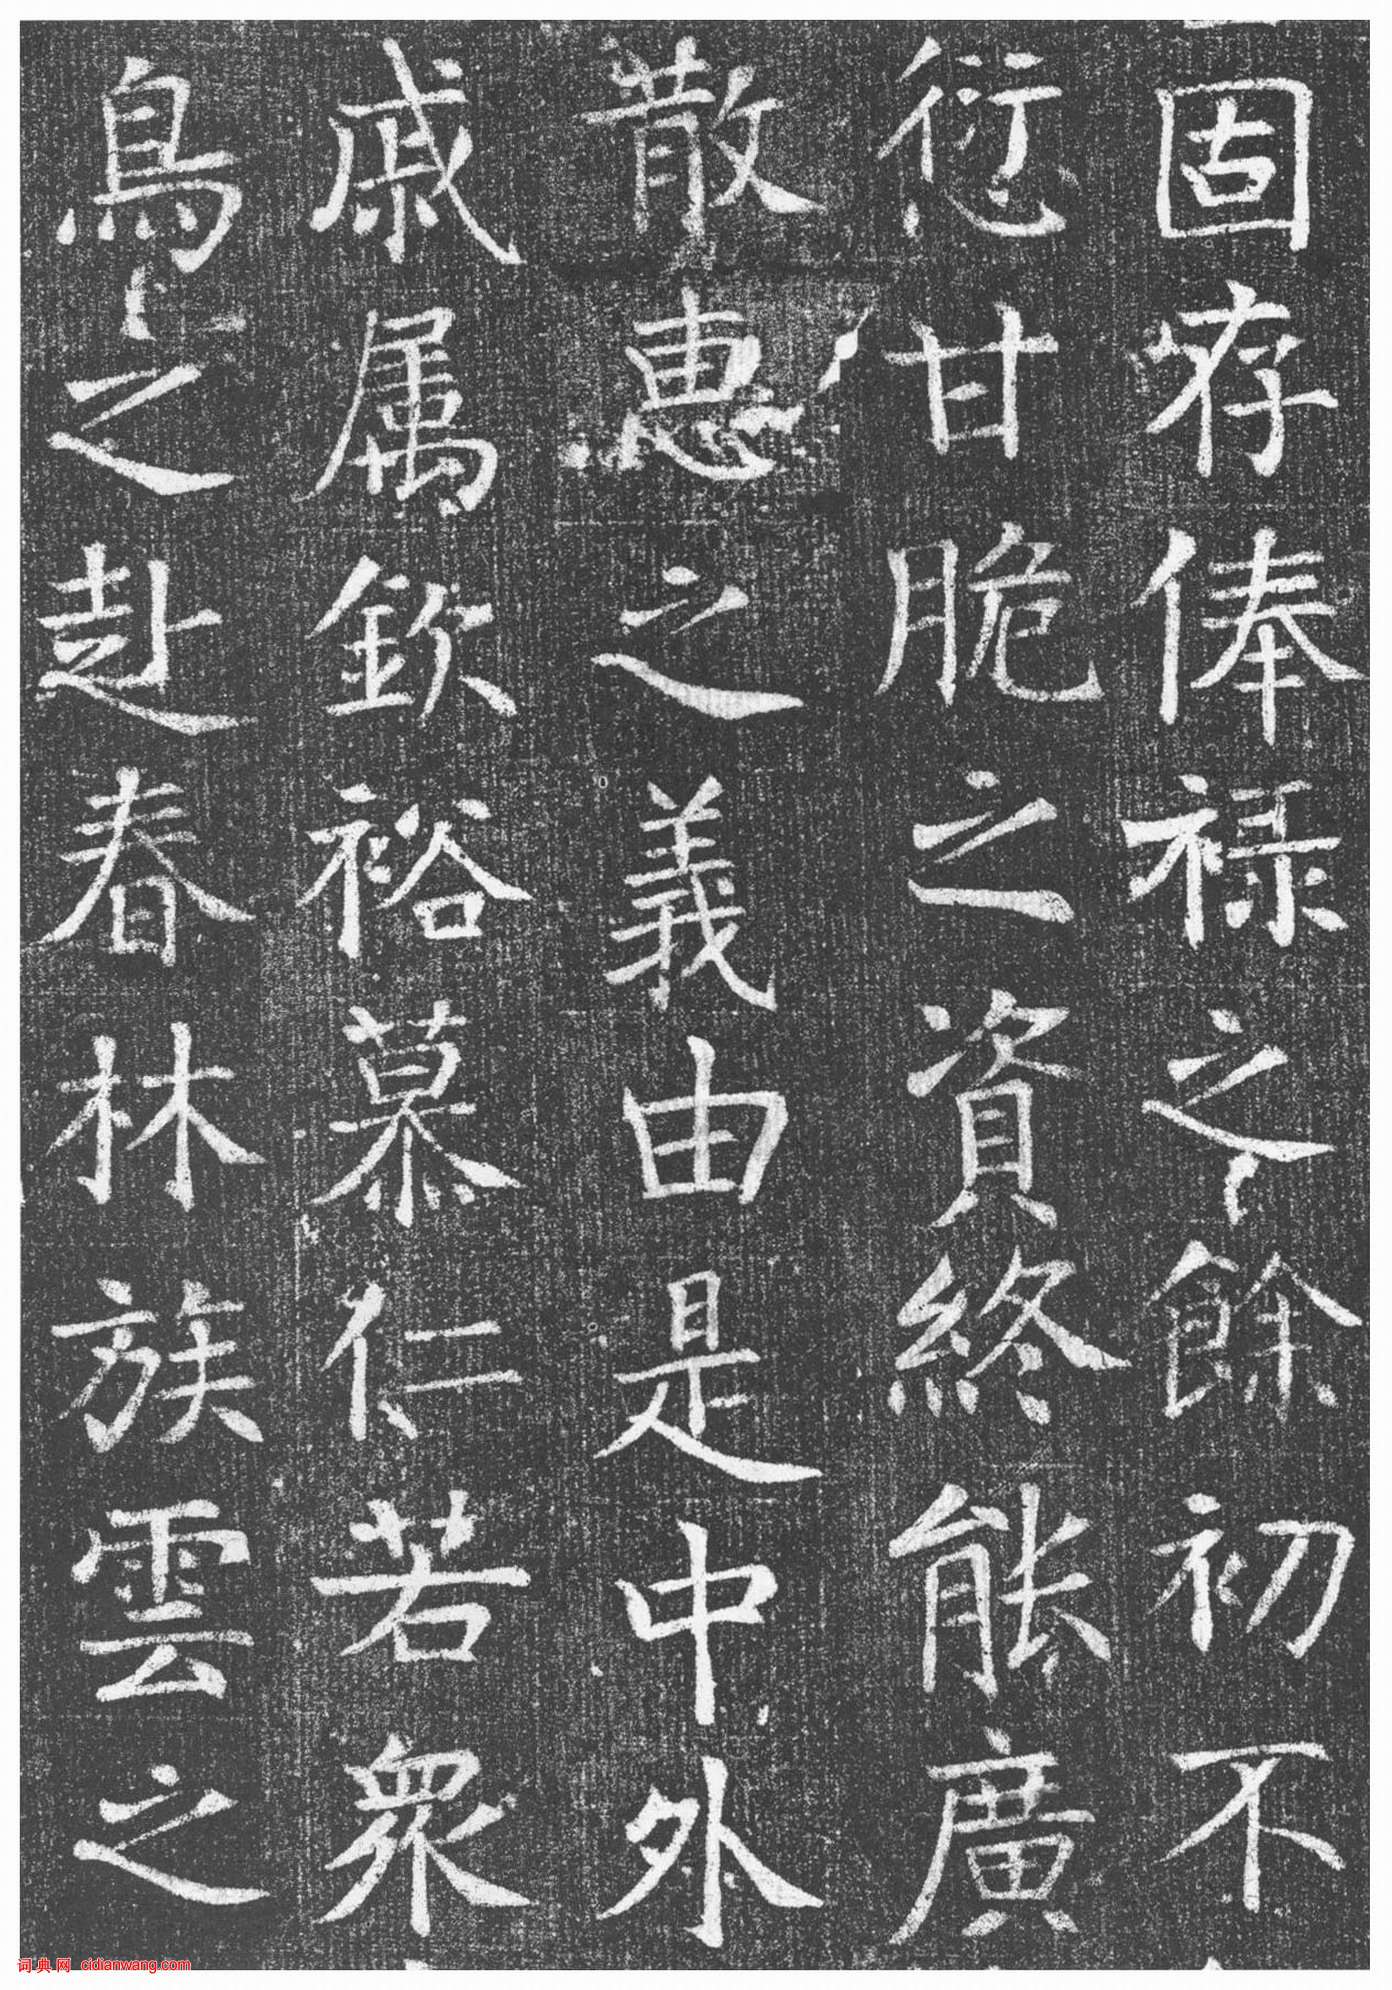 固存俸禄之餘初不
愆甘脆之資終能廣
散惠之義由是中外
戚属欽裕慕仁若衆
鳥之赴春林族雲之
词典网 cidianwang.com